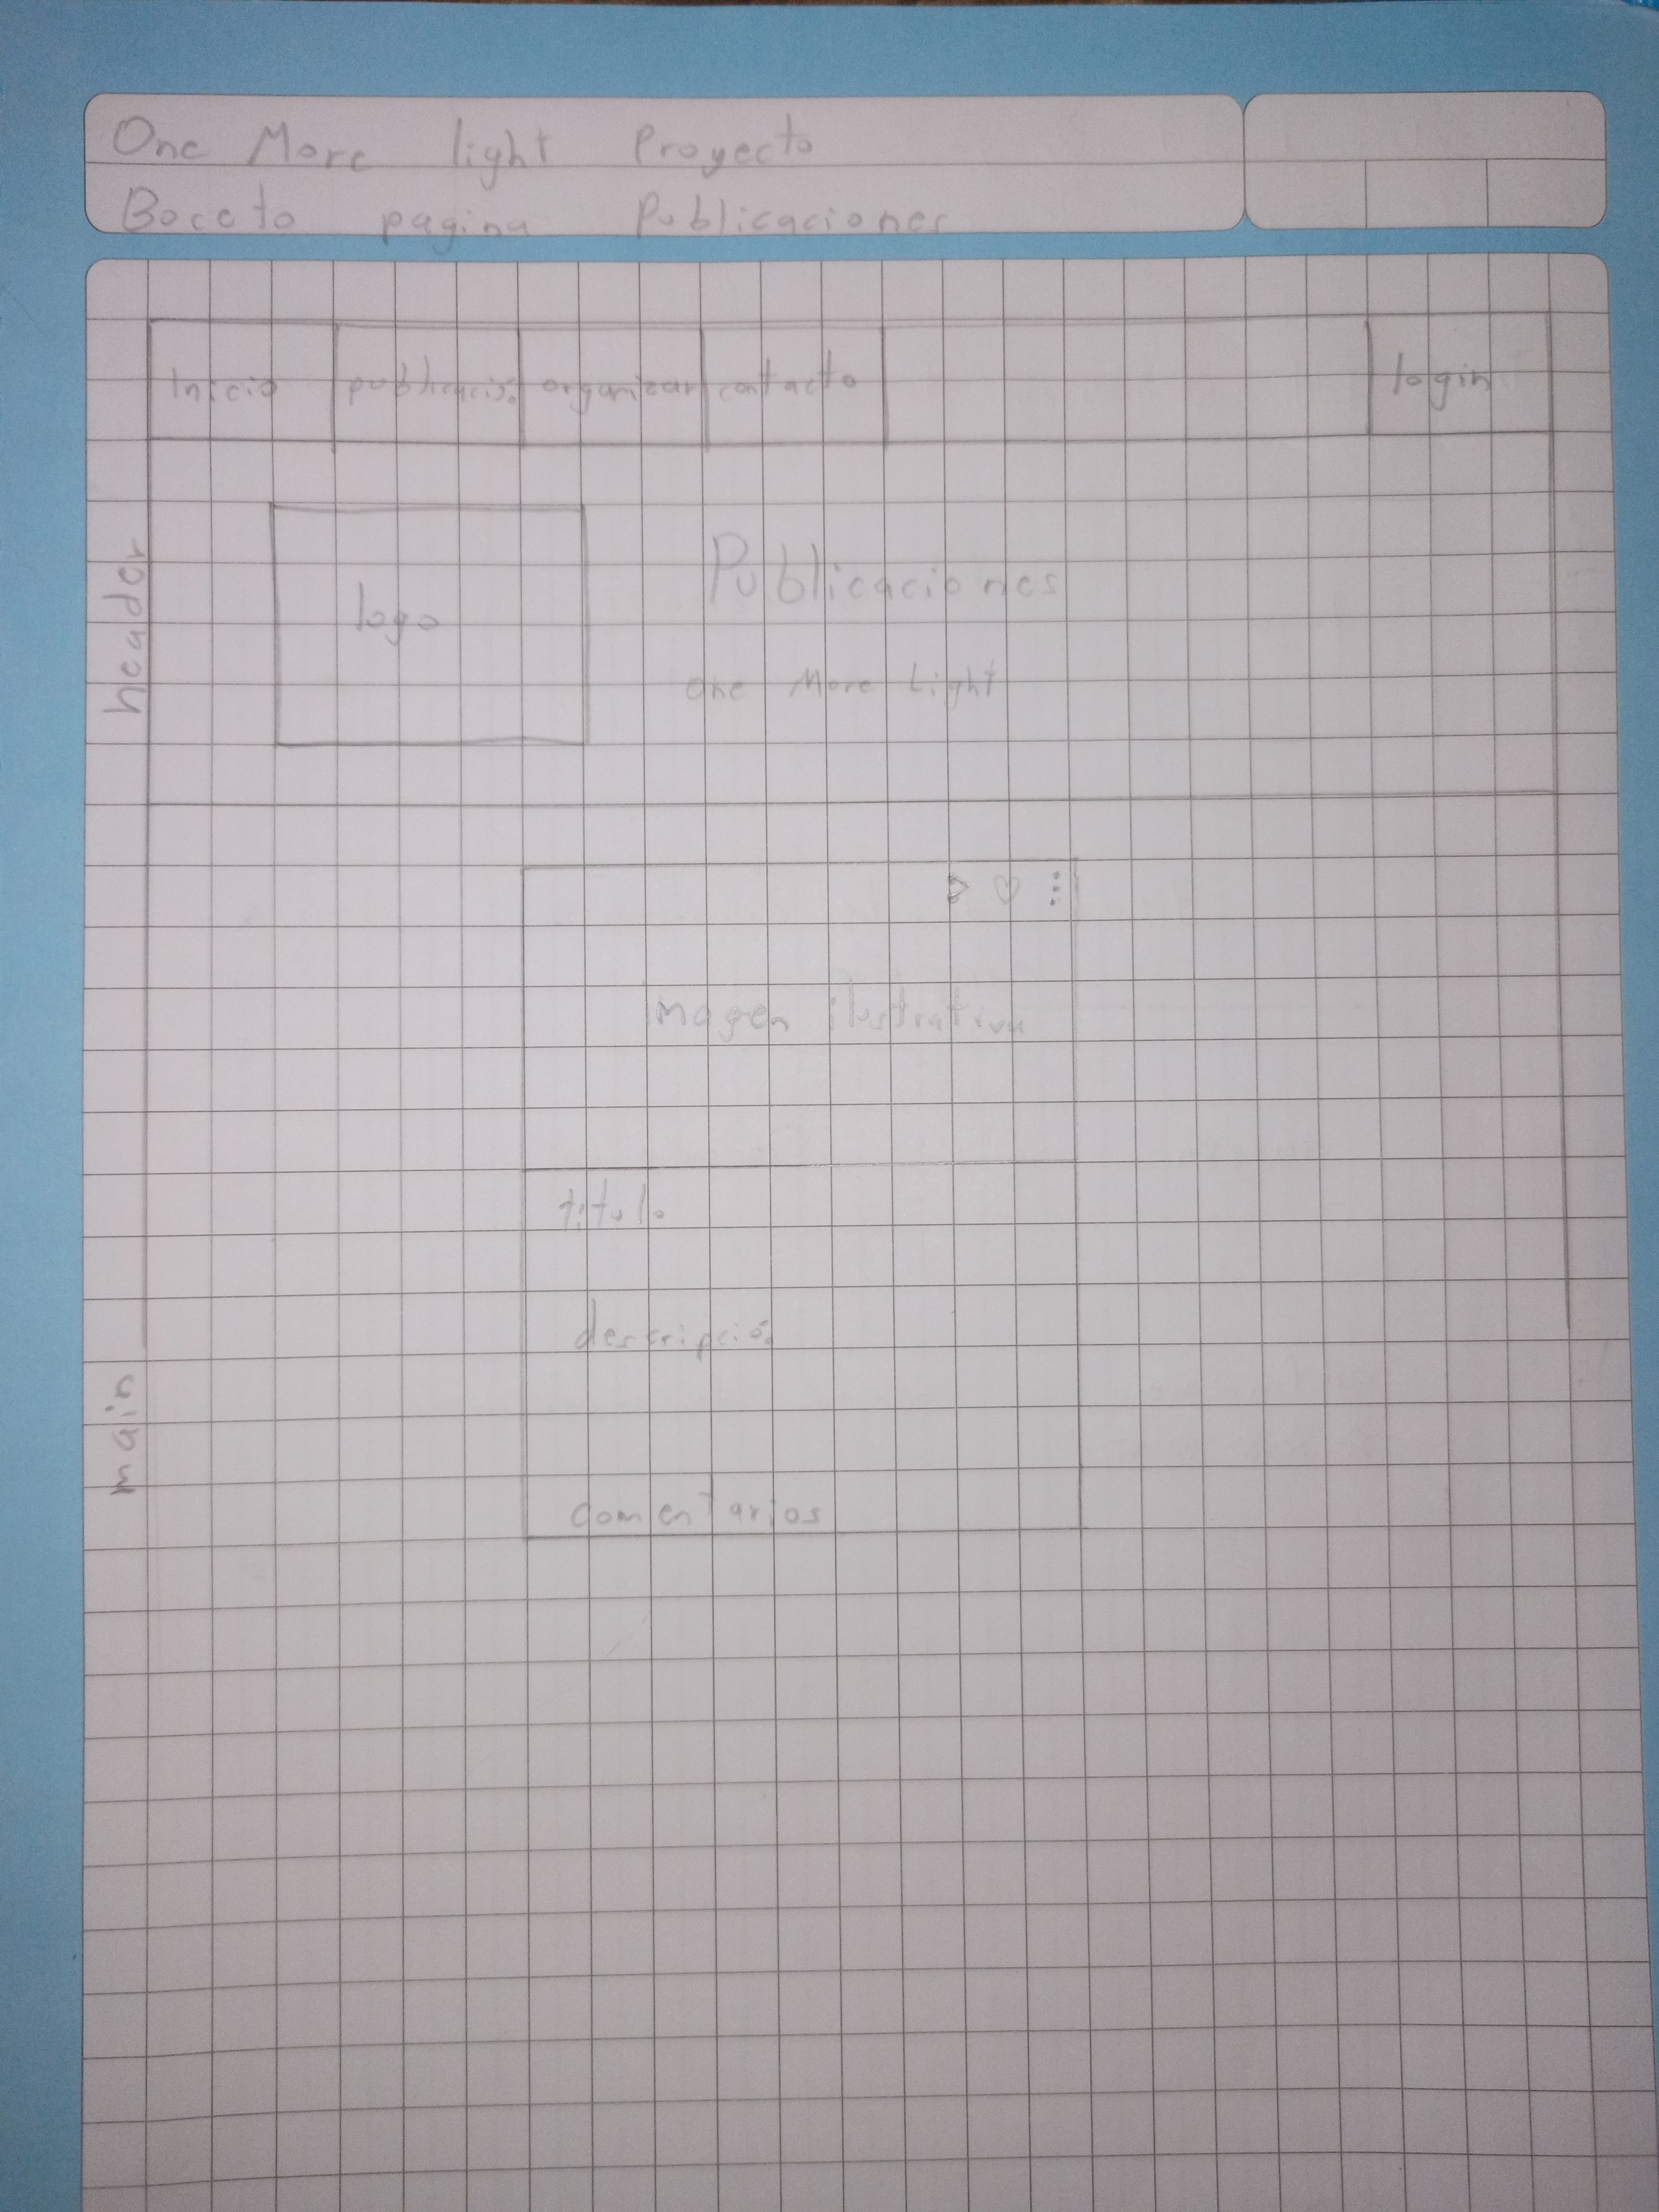 One More light Proyecto
Boceto pagina Publicaciones
Inicio publicación organizar contacto login
header
logo
Publicaciones
One More Light
imagen ilustrativa
titulo
descripción
main
comentarios